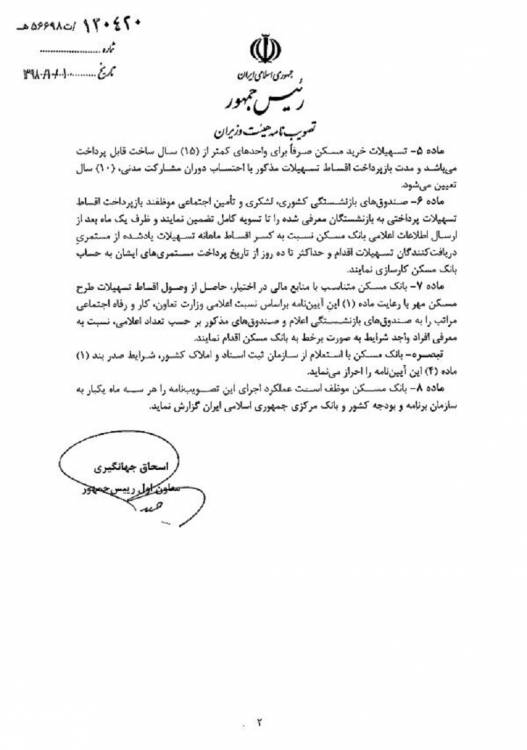 ۱۲۰۴۲۰/ت۵۶۶۹۸هـ
شماره ....................
تاریخ .......... ۱۳۹۸/۱۰/۰۱
جمهوری اسلامی ایران
رئیس جمهور
تصویب نامه هیئت وزیران
ماده ۵- تسهیلات خرید مسکن صرفاً برای واحدهای کمتر از (۱۵) سال ساخت قابل پرداخت
می‌باشد و مدت بازپرداخت اقساط تسهیلات مذکور با احتساب دوران مشارکت مدنی، (۱۰) سال
تعیین می‌شود.
ماده ۶- صندوق‌های بازنشستگی کشوری، لشکری و تأمین اجتماعی موظفند بازپرداخت اقساط
تسهیلات پرداختی به بازنشستگان معرفی شده را تا تسویه کامل تضمین نمایند و ظرف یک ماه بعد از
ارسال اطلاعات اعلامی بانک مسکن نسبت به کسر اقساط ماهانه تسهیلات یادشده از مستمری
دریافت‌کنندگان تسهیلات اقدام و حداکثر تا ده روز از تاریخ پرداخت مستمری‌های ایشان به حساب
بانک مسکن کارسازی نمایند.
ماده ۷- بانک مسکن متناسب با منابع مالی در اختیار، حاصل از وصول اقساط تسهیلات طرح
مسکن مهر با رعایت ماده (۱) این آیین‌نامه براساس نسبت اعلامی وزارت تعاون، کار و رفاه اجتماعی
مراتب را به صندوق‌های بازنشستگی اعلام و صندوق‌های مذکور بر حسب تعداد اعلامی، نسبت به
معرفی افراد واجد شرایط به صورت برخط به بانک مسکن اقدام نمایند.
تبصره- بانک مسکن با استعلام از سازمان ثبت اسناد و املاک کشور، شرایط صدر بند (۱)
ماده (۴) این آیین‌نامه را احراز می‌نماید.
ماده ۸- بانک مسکن موظف است عملکرد اجرای این تصویب‌نامه را هر سه ماه یکبار به
سازمان برنامه و بودجه کشور و بانک مرکزی جمهوری اسلامی ایران گزارش نماید.
اسحاق جهانگیری
معاون اول رییس‌جمهور
۲